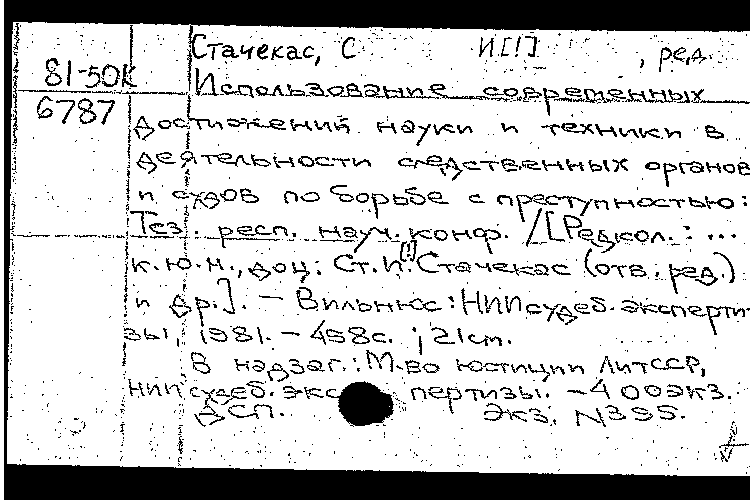 Стачекас, С И[!] , ред.
81-50К
Использование современных
6787
достижений науки и техники в
деятельности следственных органов
и судов по борьбе с преступностью:
Тез. респ. науч. конф. /[Редкол.: ...
к.ю.н., доц. Ст.И.[!] Стачекас (отв. ред.)
и др.]. - Вильнюс: НИИ судеб. эксперти-
зы, 1981. - 458с. ; 21см.
В надзаг.: М-во юстиции ЛитССР,
НИИ судеб. экс пертизы. - 400экз.
ДСП. Экз. N395.